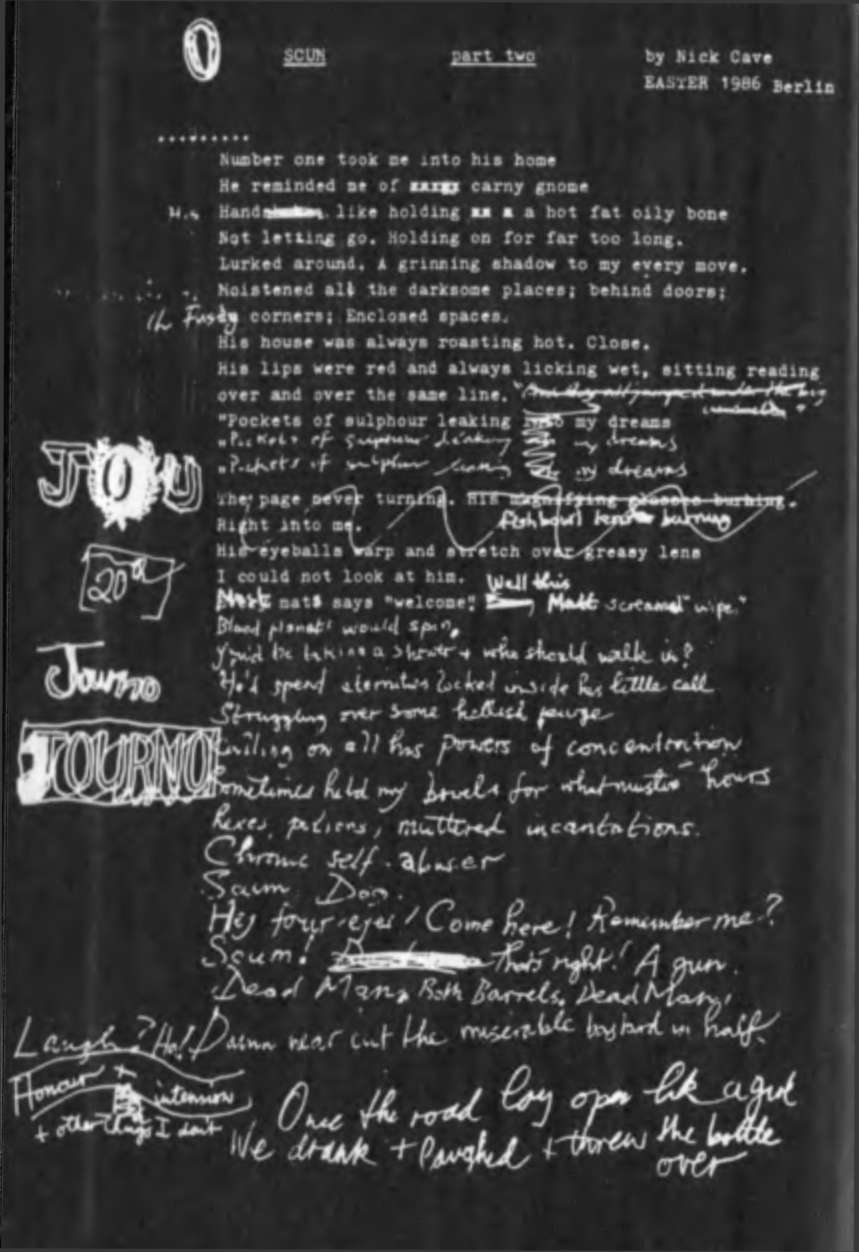 0
SCUM part two by Nick Cave
EASTER 1986 Berlin
.........
Number one took me into his home
He reminded me of carny gnome
His Hand like holding a hot fat oily bone
Not letting go. Holding on for far too long.
Lurked around. A grinning shadow to my every move.
Moistened all the darksome places; behind doors;
in Fusty corners; Enclosed spaces.
His house was always roasting hot. Close.
His lips were red and always licking wet, sitting reading
over and over the same line. "
"Pockets of sulphour leaking into my dreams
"Pockets of sulpheur leaking my dreams
"Pockets of sulphur leaking my dreams
JOU
The page never turning. His magnifying glasses burning.
Right into me. fishbowl lenses burning
His eyeballs warp and stretch over greasy lens
20
I could not look at him. Well this
Most mats says "welcome" Matt screamed "wipe."
Blood planets would spin,
Journo
You'd be taking a shower + who should walk in?
He'd spend eternities locked inside his little cell
Struggling over some hellish
JOURNO
Calling on all his powers of concentration
Sometimes held my bowels for what must've hours
hexes, potions, muttered incantations.
Chronic self-abuser
Scum. Dog.
Hey four-eyes! Come here! Remember me?
Scum! That's right! A gun.
Dead Man, Both Barrels. Dead Man,
Laugh? Ha! Damn near cut the miserable bastard in half.
Honour +
intension
+ other things I don't
Once the road lay open like a girl
We drank + laughed + threw the bottle
over